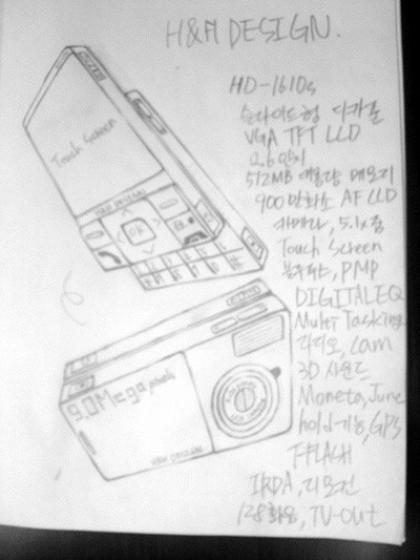 H&H DESIGN.
HD-1610s
슬라이드형 디카폰
VGA TFT LCD
2.6인치
512MB 대용량 메모리
900만화소 AF CCD
카메라, 5.1x줌
Touch Screen
블루투스, PMP
DIGITAL EQ
Multi Tasking
라디오, Cam
3D 사운드
Moneta, June
hold기능, GPS
T-FLASH
IRDA, 리모컨
128화음, TV-Out
Touch Screen
H&H DESIGN
OK
9.0Mega pixels
H&H DESIGN